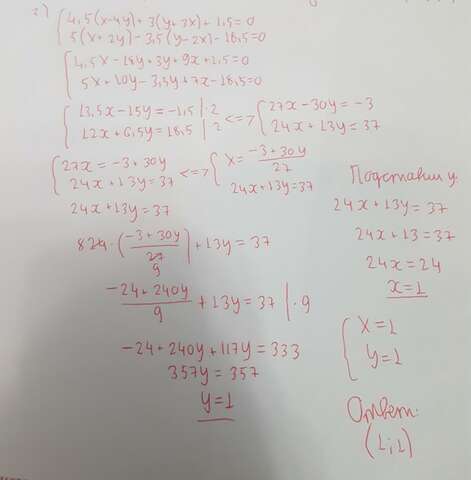 г)
4,5(x-4y)+3(y+3x)+1,5=0
5(x+2y)-3,5(y-2x)-18,5=0
4,5x-18y+3y+9x+1,5=0
5x+10y-3,5y+7x-18,5=0
13,5x-15y=-1,5 |·2 <=> 27x-30y=-3
12x+6,5y=18,5 | 2 24x+13y=37
27x=-3+30y <=> x=\frac{-3+30y}{27}
24x+13y=37 24x+13y=37
24x+13y=37
8 24·(\frac{-3+30y}{27 9})+13y=37
\frac{-24+240y}{9}+13y=37 |·9
-24+240y+117y=333
357y=357
y=1
Подставим y.
24x+13y=37
24x+13=37
24x=24
x=1
x=1
y=1
Ответ:
(1;1)